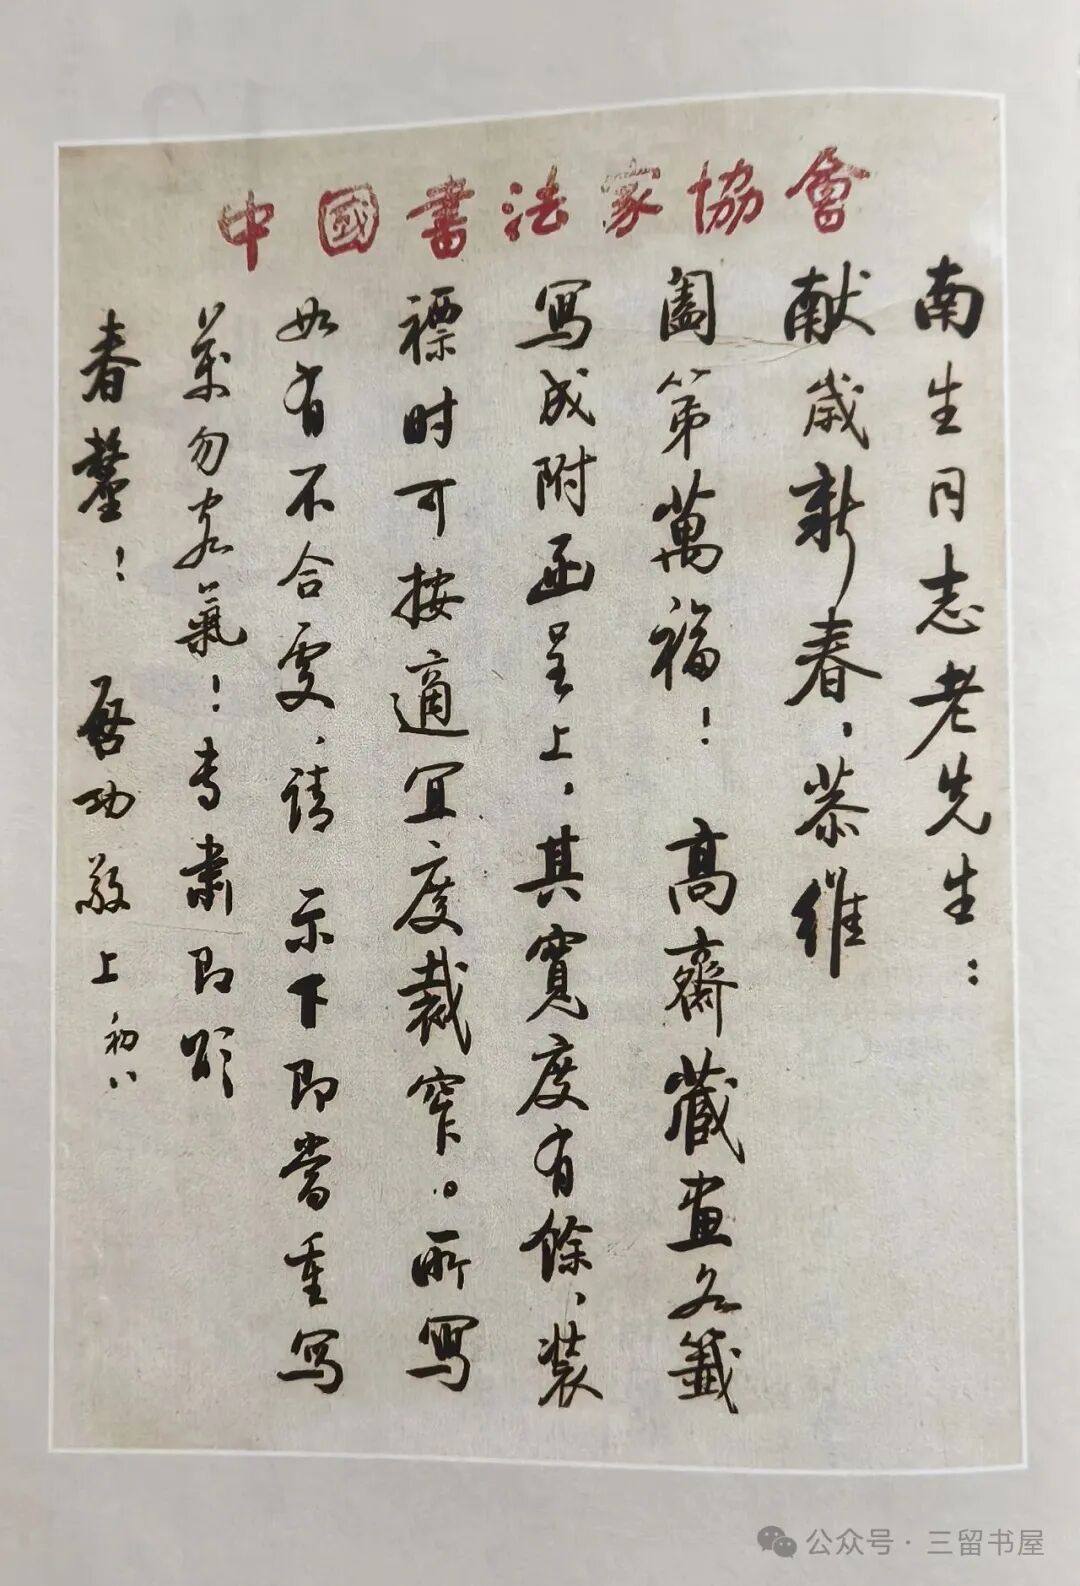 中國書法家協會
南生同志老先生：
献歲新春，恭維
闔第萬福！ 高齋藏畫名籤
寫成附函呈上，其寬度有餘，裝
褾时可按適宜度裁窄。所寫
如有不合處，请 示下即當重写
萬勿客氣！专肅即頌
春釐！ 啓功敬上 初八
公众号·三留书屋